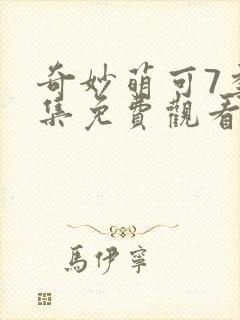 奇妙萌可7季
集免費觀看
馬伊寧